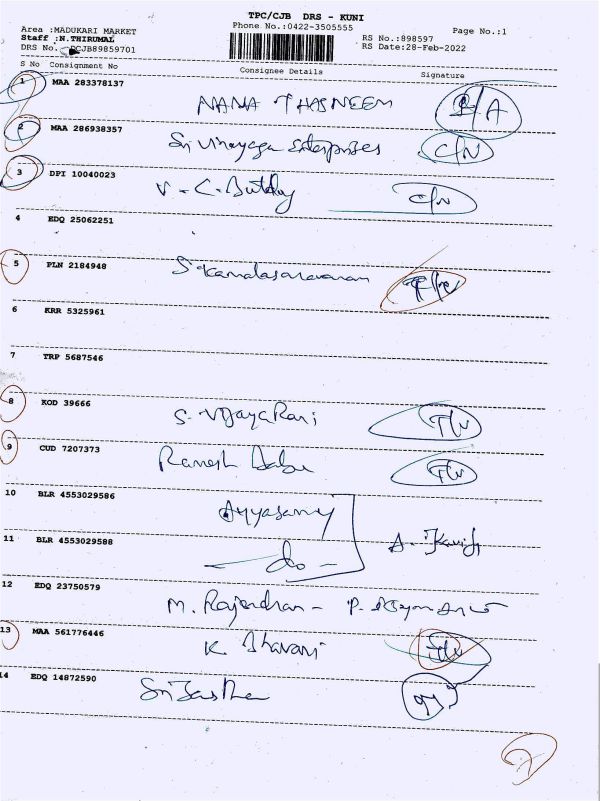 TPC/CJB DRS - KUNI
Phone No.:0422-3505555
Area :MADUKARI MARKET
Staff :N.THIRUMAL
DRS No.
CJB89859701
Page No.:1
RS No.:898597
RS Date:28-Feb-2022
S No Consignment No Consignee Details Signature
1 MAA 283378137
NAMA THASNEEM
2 MAA 286938357
Sri Vinayaga Enterprises C/N
3 DPI 10040023
V. C. C/N
4 EDQ 25062251
5 PLN 2184948
S Kamalasaravanan
6 KRR 5325961
7 TRP 5687546
8 KOD 39666
S. VijayaRani T/N
9 CUD 7207373
Ramesh Babu T/N
10 BLR 4553029586
Ayyasamy
11 BLR 4553029588
- do - A.
12 EDQ 23750579
M. Rajendran - P.
13 MAA 561776446
K. Bhavani
14 EDQ 14872590